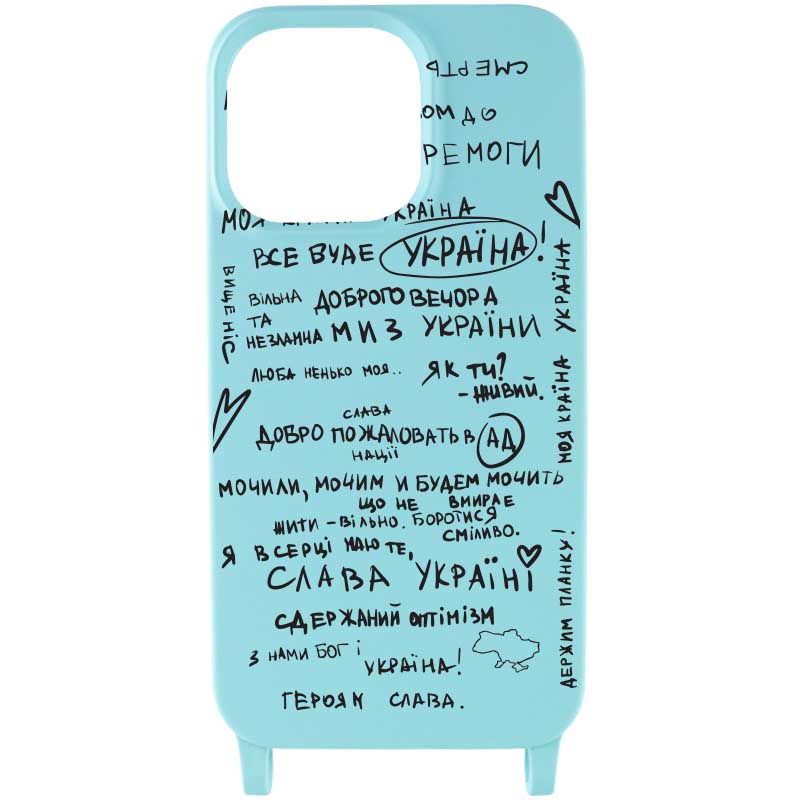 СМЕРТЬ
ОМ ДО
РЕМОГИ
МОЯ КРАЇНА
ВСЕ БУДЕ УКРАЇНА!
ВИЩЕ НІС
ВІЛЬНА
ТА
НЕЗЛАМНА
ДОБРОГО ВЕЧОРА
МИ З УКРАЇНИ
ЛЮБА НЕНЬКО МОЯ..
ЯК ТИ?
- ЖИВИЙ.
СЛАВА
ДОБРО ПОЖАЛОВАТЬ В АД
НАЦІЇ
МОЧИЛИ, МОЧИМ И БУДЕМ МОЧИТЬ
ЩО НЕ ВМИРАЕ
ЖИТИ - ВІЛЬНО. БОРОТИСЯ
СМІЛИВО.
Я В СЕРЦІ МАЮ ТЕ,
СЛАВА УКРАЇНІ
СДЕРЖАНИЙ ОПТІМІЗМ
З НАМИ БОГ І
УКРАЇНА!
ГЕРОЯМ СЛАВА.
МОЯ КРАЇНА УКРАЇНА
ДЕРЖИМ ПЛАНКУ!